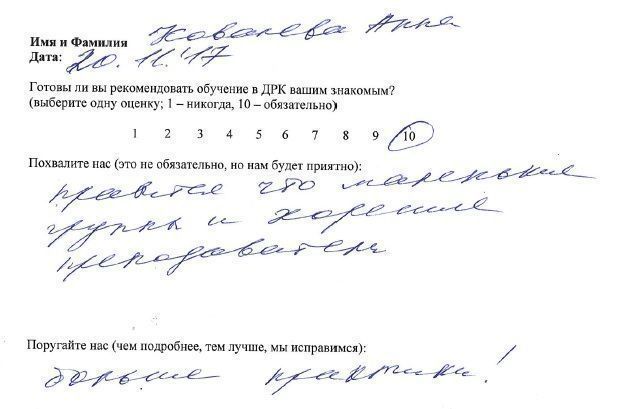 Имя и Фамилия Ковалева Анна
Дата: 20.11.'17
Готовы ли вы рекомендовать обучение в ДРК вашим знакомым?
(выберите одну оценку; 1 – никогда, 10 – обязательно)
1 2 3 4 5 6 7 8 9 10
Похвалите нас (это не обязательно, но нам будет приятно):
нравится что маленькие
группы и хорошие
преподаватели
Поругайте нас (чем подробнее, тем лучше, мы исправимся):
больше практики!